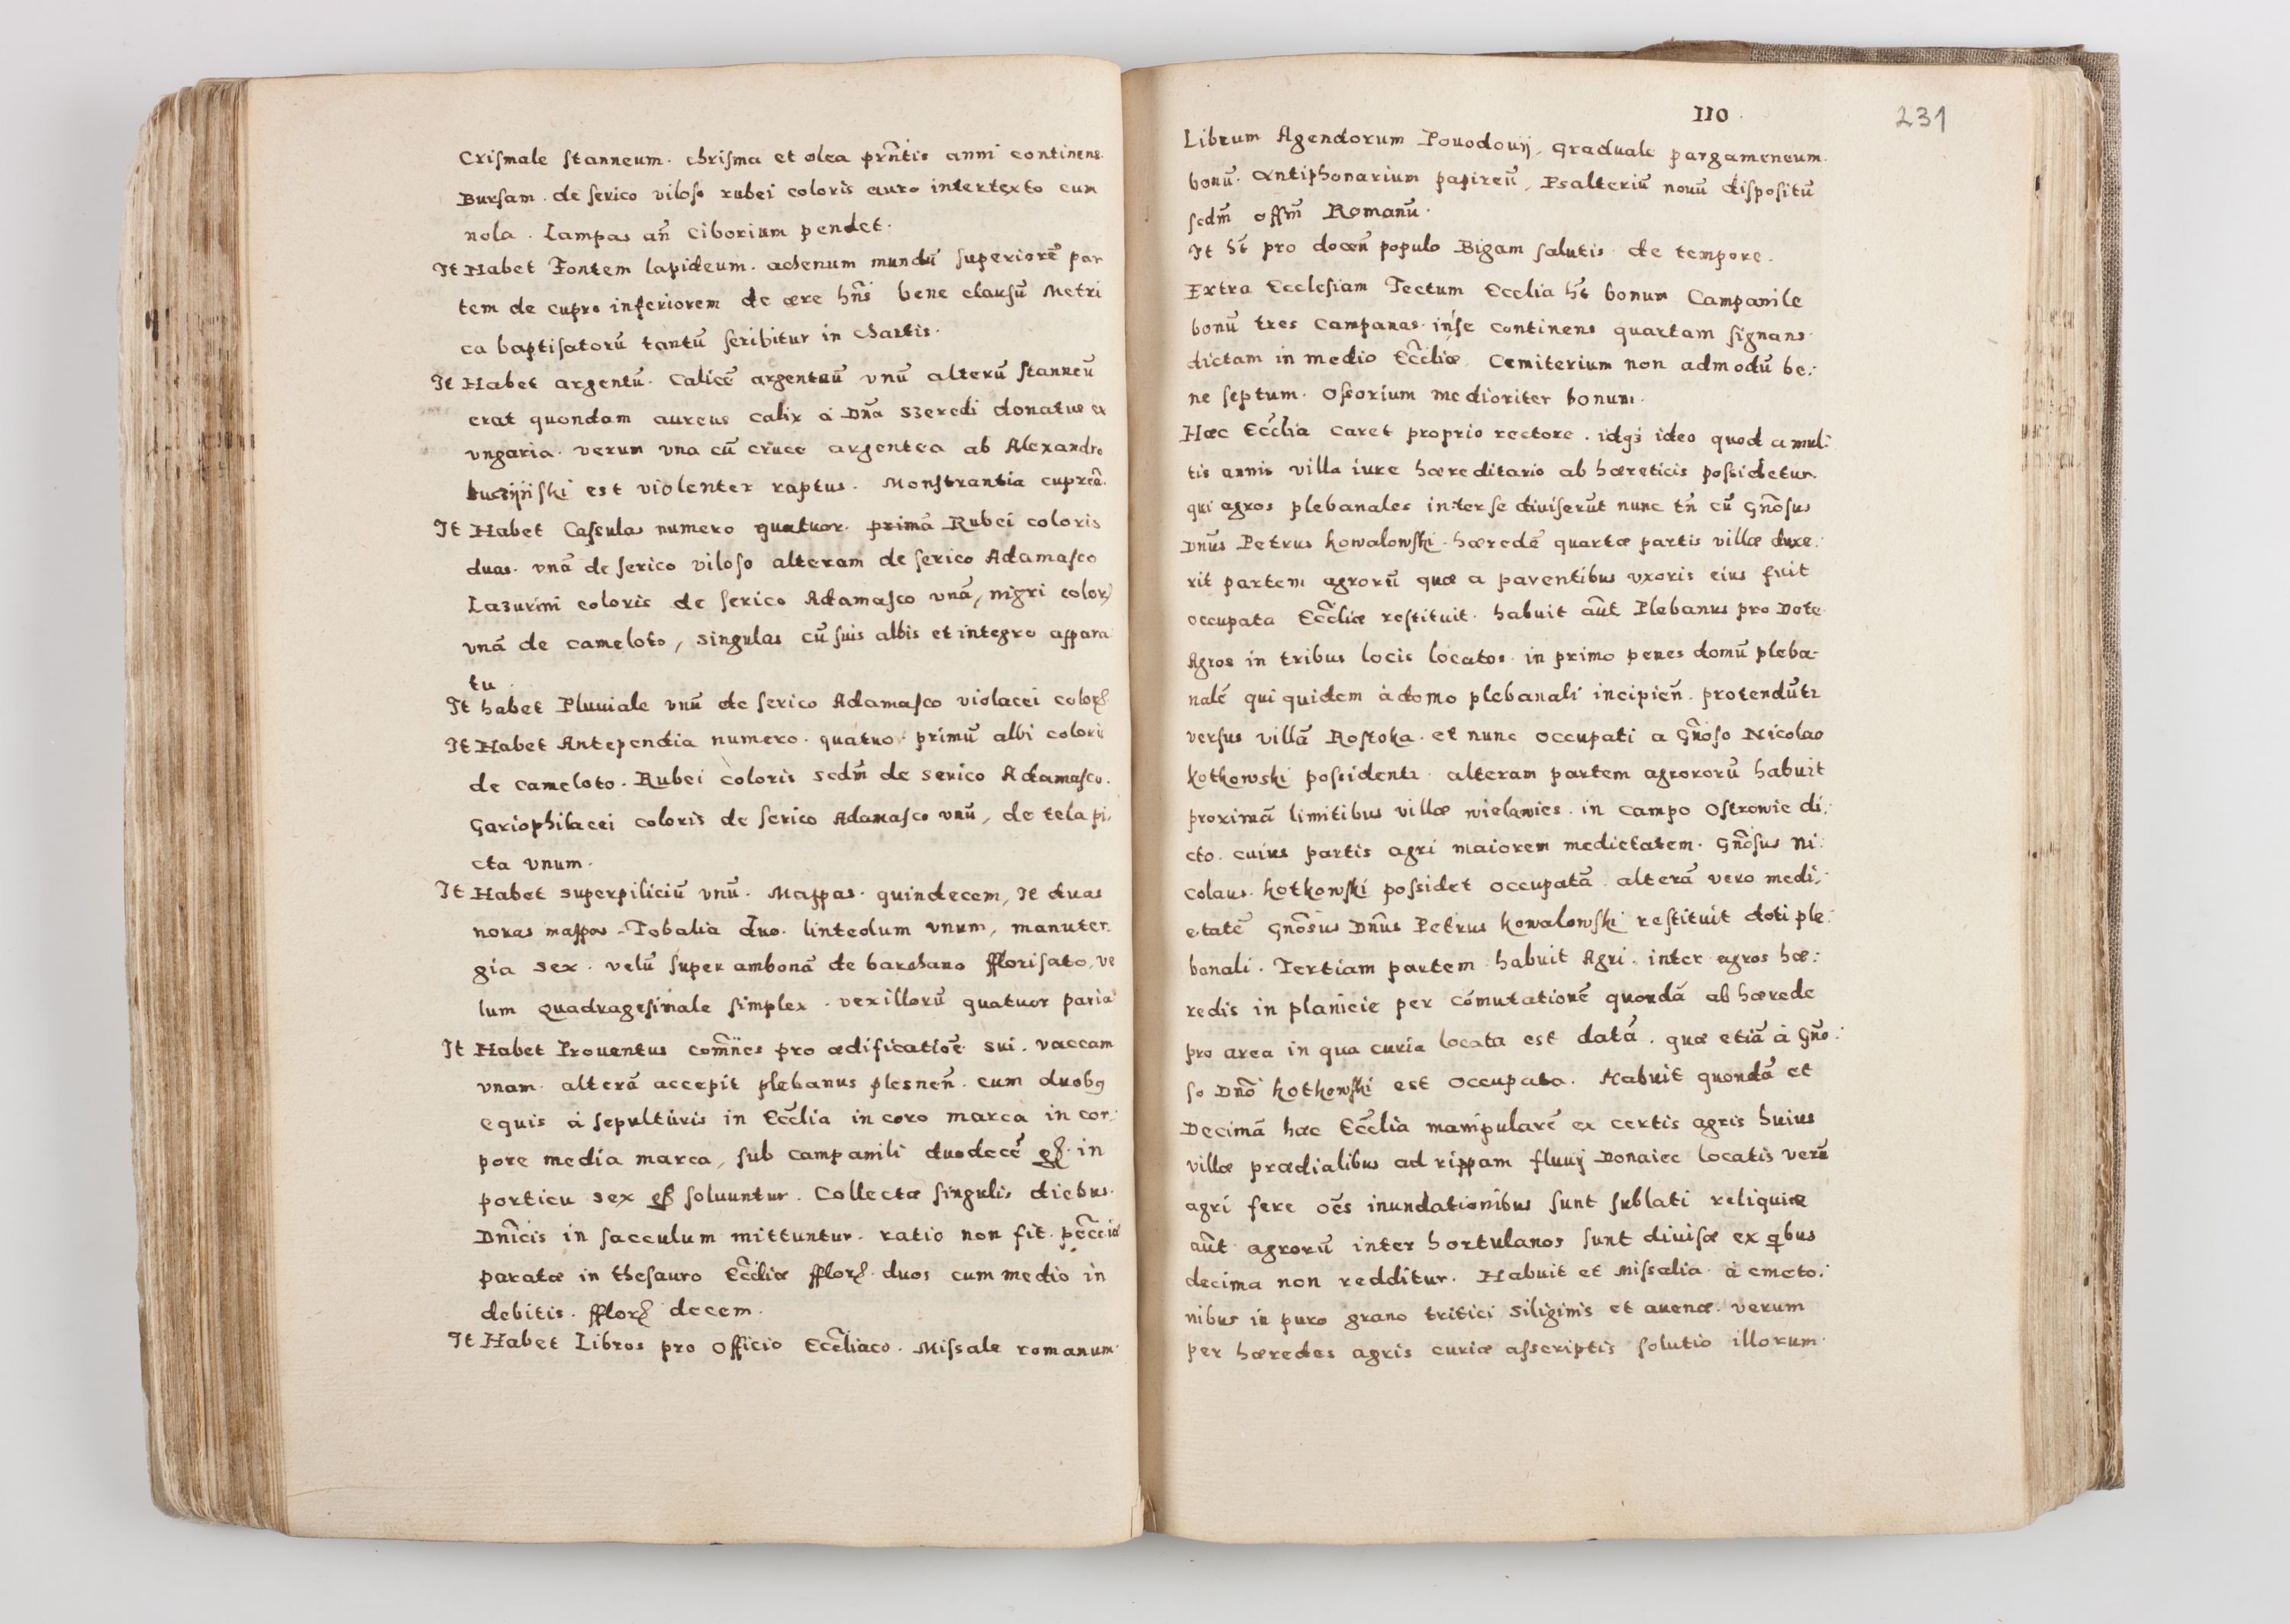 Crismale stanneum. chrisma et olea prñtis anni continens.
Bursam. de serico viloso rubei coloris auro intertexto cum
nola. Lampas añ Ciborium pendet.
It Habet Fontem lapideum. achenum mundũ superiorẽ par
tem de cupro inferiorem de ære hñs bene clausũ Metri
ca baptisatorũ tantũ scribitur in Chartis.
It Habet argentũ. Calicẽ argenteũ vnũ alterũ stanneũ
erat quondam aureus calix à Dña Szeredi donatus ex
vngaria. verum vna cũ cruce argentea ab Alexandro
est violenter raptus. Monstrantia cupreã.
It Habet Cassulas numero quatuor. primã Rubei coloris
duas. vnã de serico viloso alteram de serico Adamasco
Lazurini coloris de serico Adamasco vnã, nigri color
vnã de cameloto, singulas cũ suis albis et integro appara
tu.
It habet Pluuiale vnũ de serico Adamasco violacei color
It Habet Antependia numero. quatuor primũ albi coloris
de cameloto. Rubei coloris scdm̃ de serico Adamasco.
Gariophilacei coloris de serico Adamasco vnũ, de tela pi,
cta vnum.
It Habet superpiliciũ vnũ. Mappas. quindecem, It duas
nouas mappas. Tobalia duo. linteolum vnum, manuter.
gia sex. velũ super ambonã de barchano fflorisato, ve
lum Quadragesimale simplex. vexillorũ quatuor paria
It Habet Prouentus com̃nes pro ædificatiõe sui. vaccam
vnam. alterã accepit plebanus plesneñ. cum duobꝰ
equis à sepulturis in Eccl̃ia in coro marca in cor:
pore media marca, sub campanili duodecẽ gꝭ. in
porticu sex gꝭ soluuntur. Collectæ singulis diebus.
Dñicis in sacculum mittuntur. ratio non fit. pecc̃iæ
paratæ in thesauro Eccl̃iæ fflorꝭ. duos cum medio in
debitis. fflorꝭ decem.
It Habet Libros pro Officio Eccl̃iaco. Missale romanum.
110.
231
Librum Agendorum Pouodouij, Graduale pargameneum.
bonũ. Antiphonarium papireũ, Psalteriũ nouũ dispositũ
scdm̃ offm̃ Romanũ.
It ht̃ pro doceñ populo Bigam salutis de tempore.
Extra Ecclesiam Tectum Ecclia ht̃ bonum Campanile
bonũ tres Campanas. in se continens quartam signans.
dictam in medio Eccl̃iæ. Cemiterium non admodũ be:
ne septum. Ossorium mediocriter bonum.
Hæc Eccl̃ia caret proprio rectore. idqꝫ ideo quod a mul:
tis annis villa iure hæreditario ab hæreticis possidetur.
qui agros plebanales inter se diuiserũt nunc tñ cũ Gñosus
Dñus Petrus Kowalowski. hæredẽ quartæ partis villæ duxe:
rit partem agrorũ quæ a parentibus vxoris eius fuit
occupata Eccl̃iæ restituit. habuit aũt Plebanus pro Dote.
Agros in tribus locis locatos. in primo penes domũ pleba-
nalẽ qui quidem à domo plebanali incipieñ. protendũtr
versus villã Rostoka. et nunc occupati a Gñoso Nicolao
Kotkowski possidentr. alteram partem agrororũ habuit
proximã limitibus villæ wielawies. in campo Ostrowie di:
cto. cuius partis agri maiorem medietatem. Gñosus Ni:
colaus. Kotkowski possidet occupatã. alterã vero medi:
etatẽ Gñosus Dñus Petrus Kowalowski restituit doti ple:
banali. Tertiam partem habuit Agri. inter agros hæ:
redis in planicie per cõmutationẽ quondã ab hærede
pro area in qua curia locata est datã. quæ etiã à Gño:
so Dño Kotkowski est occupata. Habuit quondã et
Decimã hæc Eccl̃ia manipularẽ ex certis agris huius
villæ prædialibus ad rippam fluuij Donaiec locatis verũ
agri fere oẽs inundationibus sunt sublati reliquiæ
aũt agrorũ inter hortulanos sunt diuisæ ex qbus
decima non redditur. Habuit et Missalia. à cmeto:
nibus in puro grano tritici siliginis et auenæ. verum
per hæredes agris curiæ asscriptis solutio illorum.